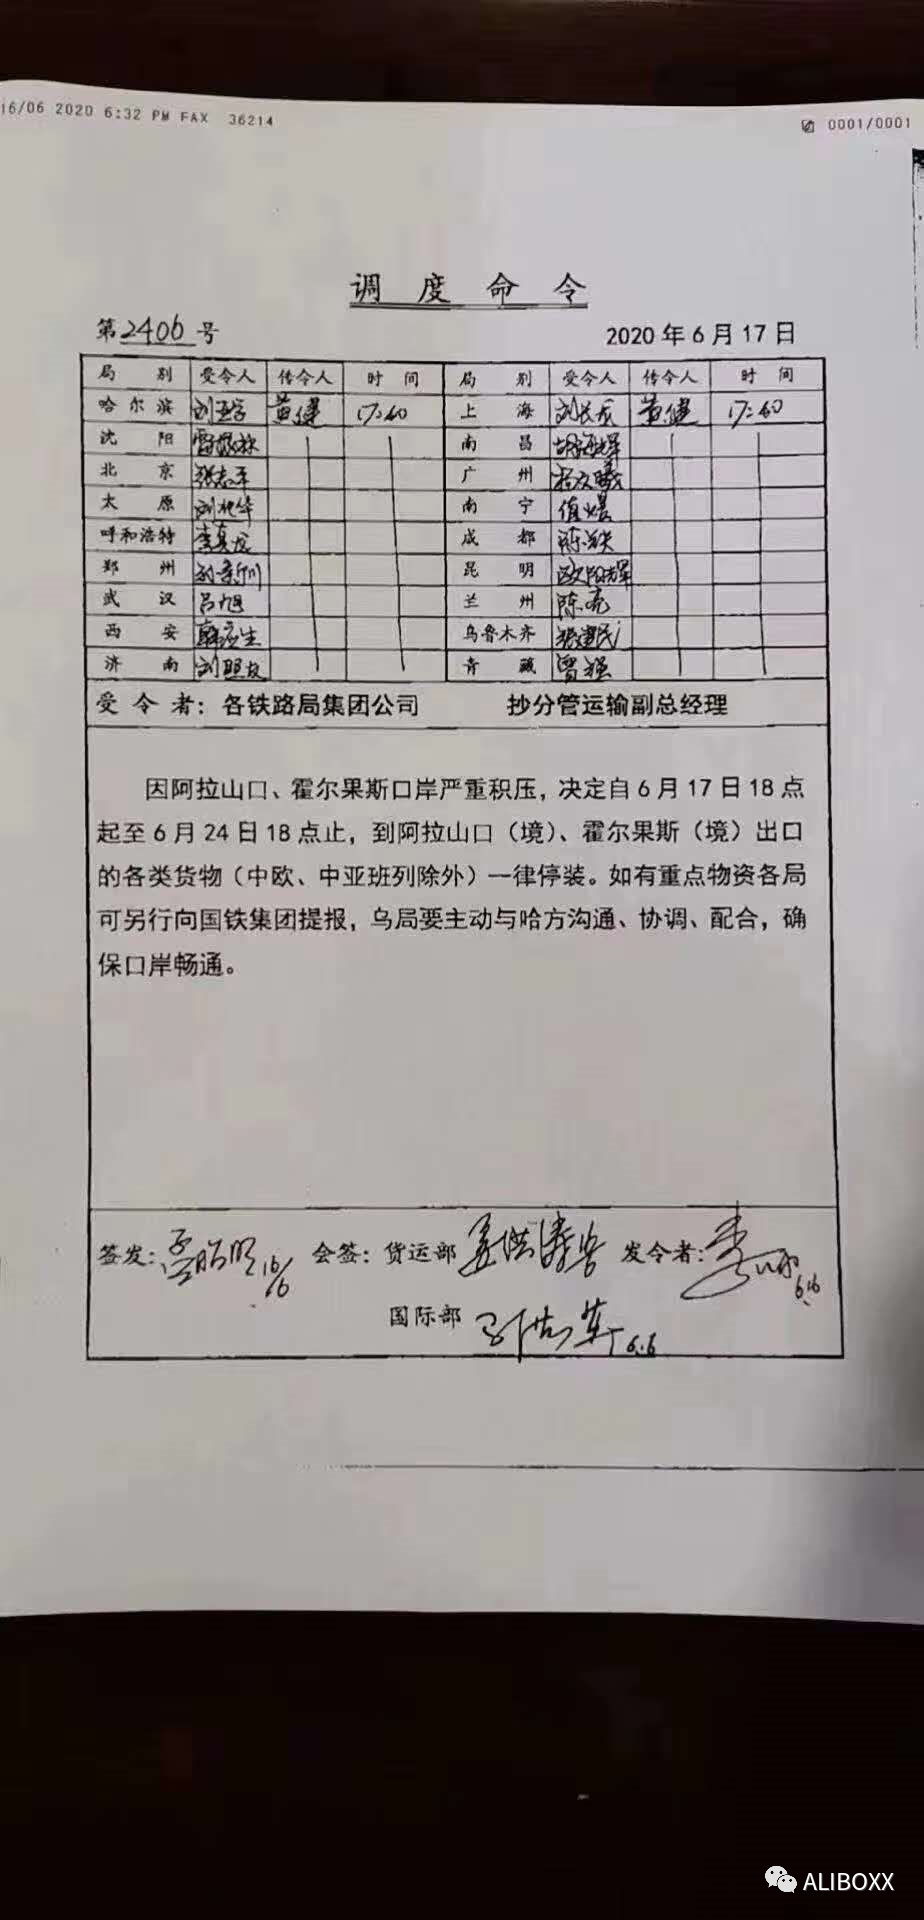 16/06 2020 6:32 PM FAX 36214 0001/0001
调度命令
第2406号 2020年6月17日
局别 受令人 传令人 时间 局别 受令人 传令人 时间
哈尔滨 黄健 17:40 上海 刘长龙 黄健 17:40
沈阳 南昌
北京 张志军 广州
太原 南宁 值班
呼和浩特 成都
郑州 昆明 欧阳
武汉 吕旭 兰州 陈亮
西安 乌鲁木齐 张建民
济南 青藏 曾强
受令者：各铁路局集团公司 抄分管运输副总经理
因阿拉山口、霍尔果斯口岸严重积压，决定自6月17日18点
起至6月24日18点止，到阿拉山口（境）、霍尔果斯（境）出口
的各类货物（中欧、中亚班列除外）一律停装。如有重点物资各局
可另行向国铁集团提报，乌局要主动与哈方沟通、协调、配合，确
保口岸畅通。
签发： 16/6 会签：货运部 发令者： 6.16
国际部
ALIBOXX